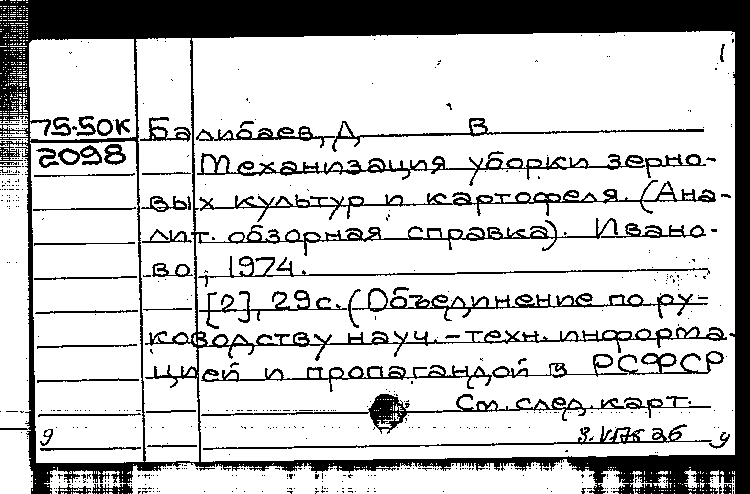 1
75-50К Балибаев, Д В
2098 Механизация уборки зерно-
вых культур и картофеля. (Ана-
лит. обзорная справка). Ивано-
во, 1974.
[2], 29 с. (Объединение по ру-
ководству науч.-техн. информа-
цией и пропагандой в РСФСР
См. след. карт.
9 у